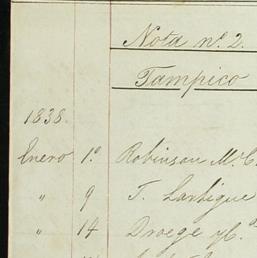 Nota nº. 2.
Tampico
1838.
Enero 1º Robinson Mc.C.
" 9 T. Lartigue
" 14 Droege y Cª